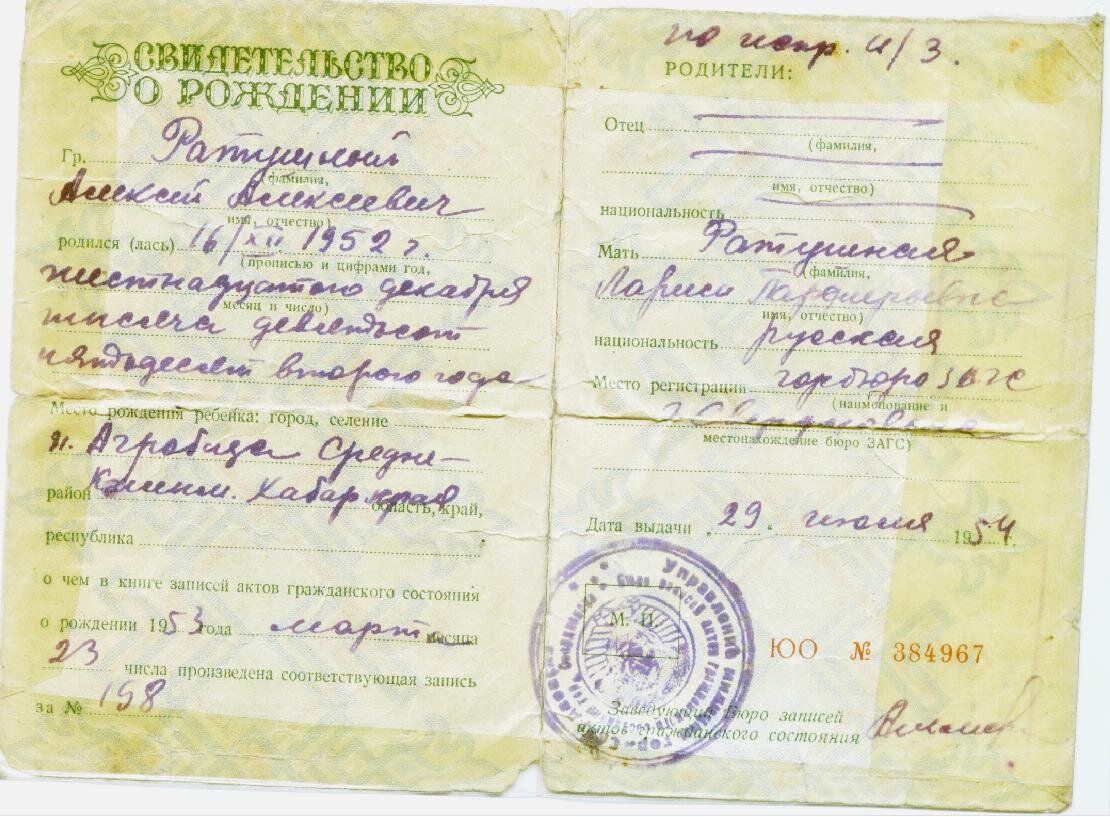 СВИДЕТЕЛЬСТВО
О РОЖДЕНИИ
Гр. Ратушный
(фамилия,
Алексей Алексеевич
имя, отчество)
родился (лась) 16/XII 1952 г.
(прописью и цифрами год,
шестнадцатого декабря
месяц и число)
тысяча девятьсот
пятьдесят второго года
Место рождения ребенка: город, селение
п. Агробаза Средне-
район Хабар. края область, край,
республика
о чем в книге записей актов гражданского состояния
о рождении 1953 года март месяца
23 числа произведена соответствующая запись
за № 198
по испр. а/з.
РОДИТЕЛИ:
Отец
(фамилия,
имя, отчество)
национальность
Мать Ратушная
(фамилия,
Лариса
имя, отчество)
национальность русская
Место регистрации горбюро ЗАГС
(наименование и
г. Свердловска
местонахождение бюро ЗАГС)
Дата выдачи „29“ июля 1954 г.
М. П.
Управление милиции
ЮО № 384967
Заведующий Бюро записей
актов гражданского состояния